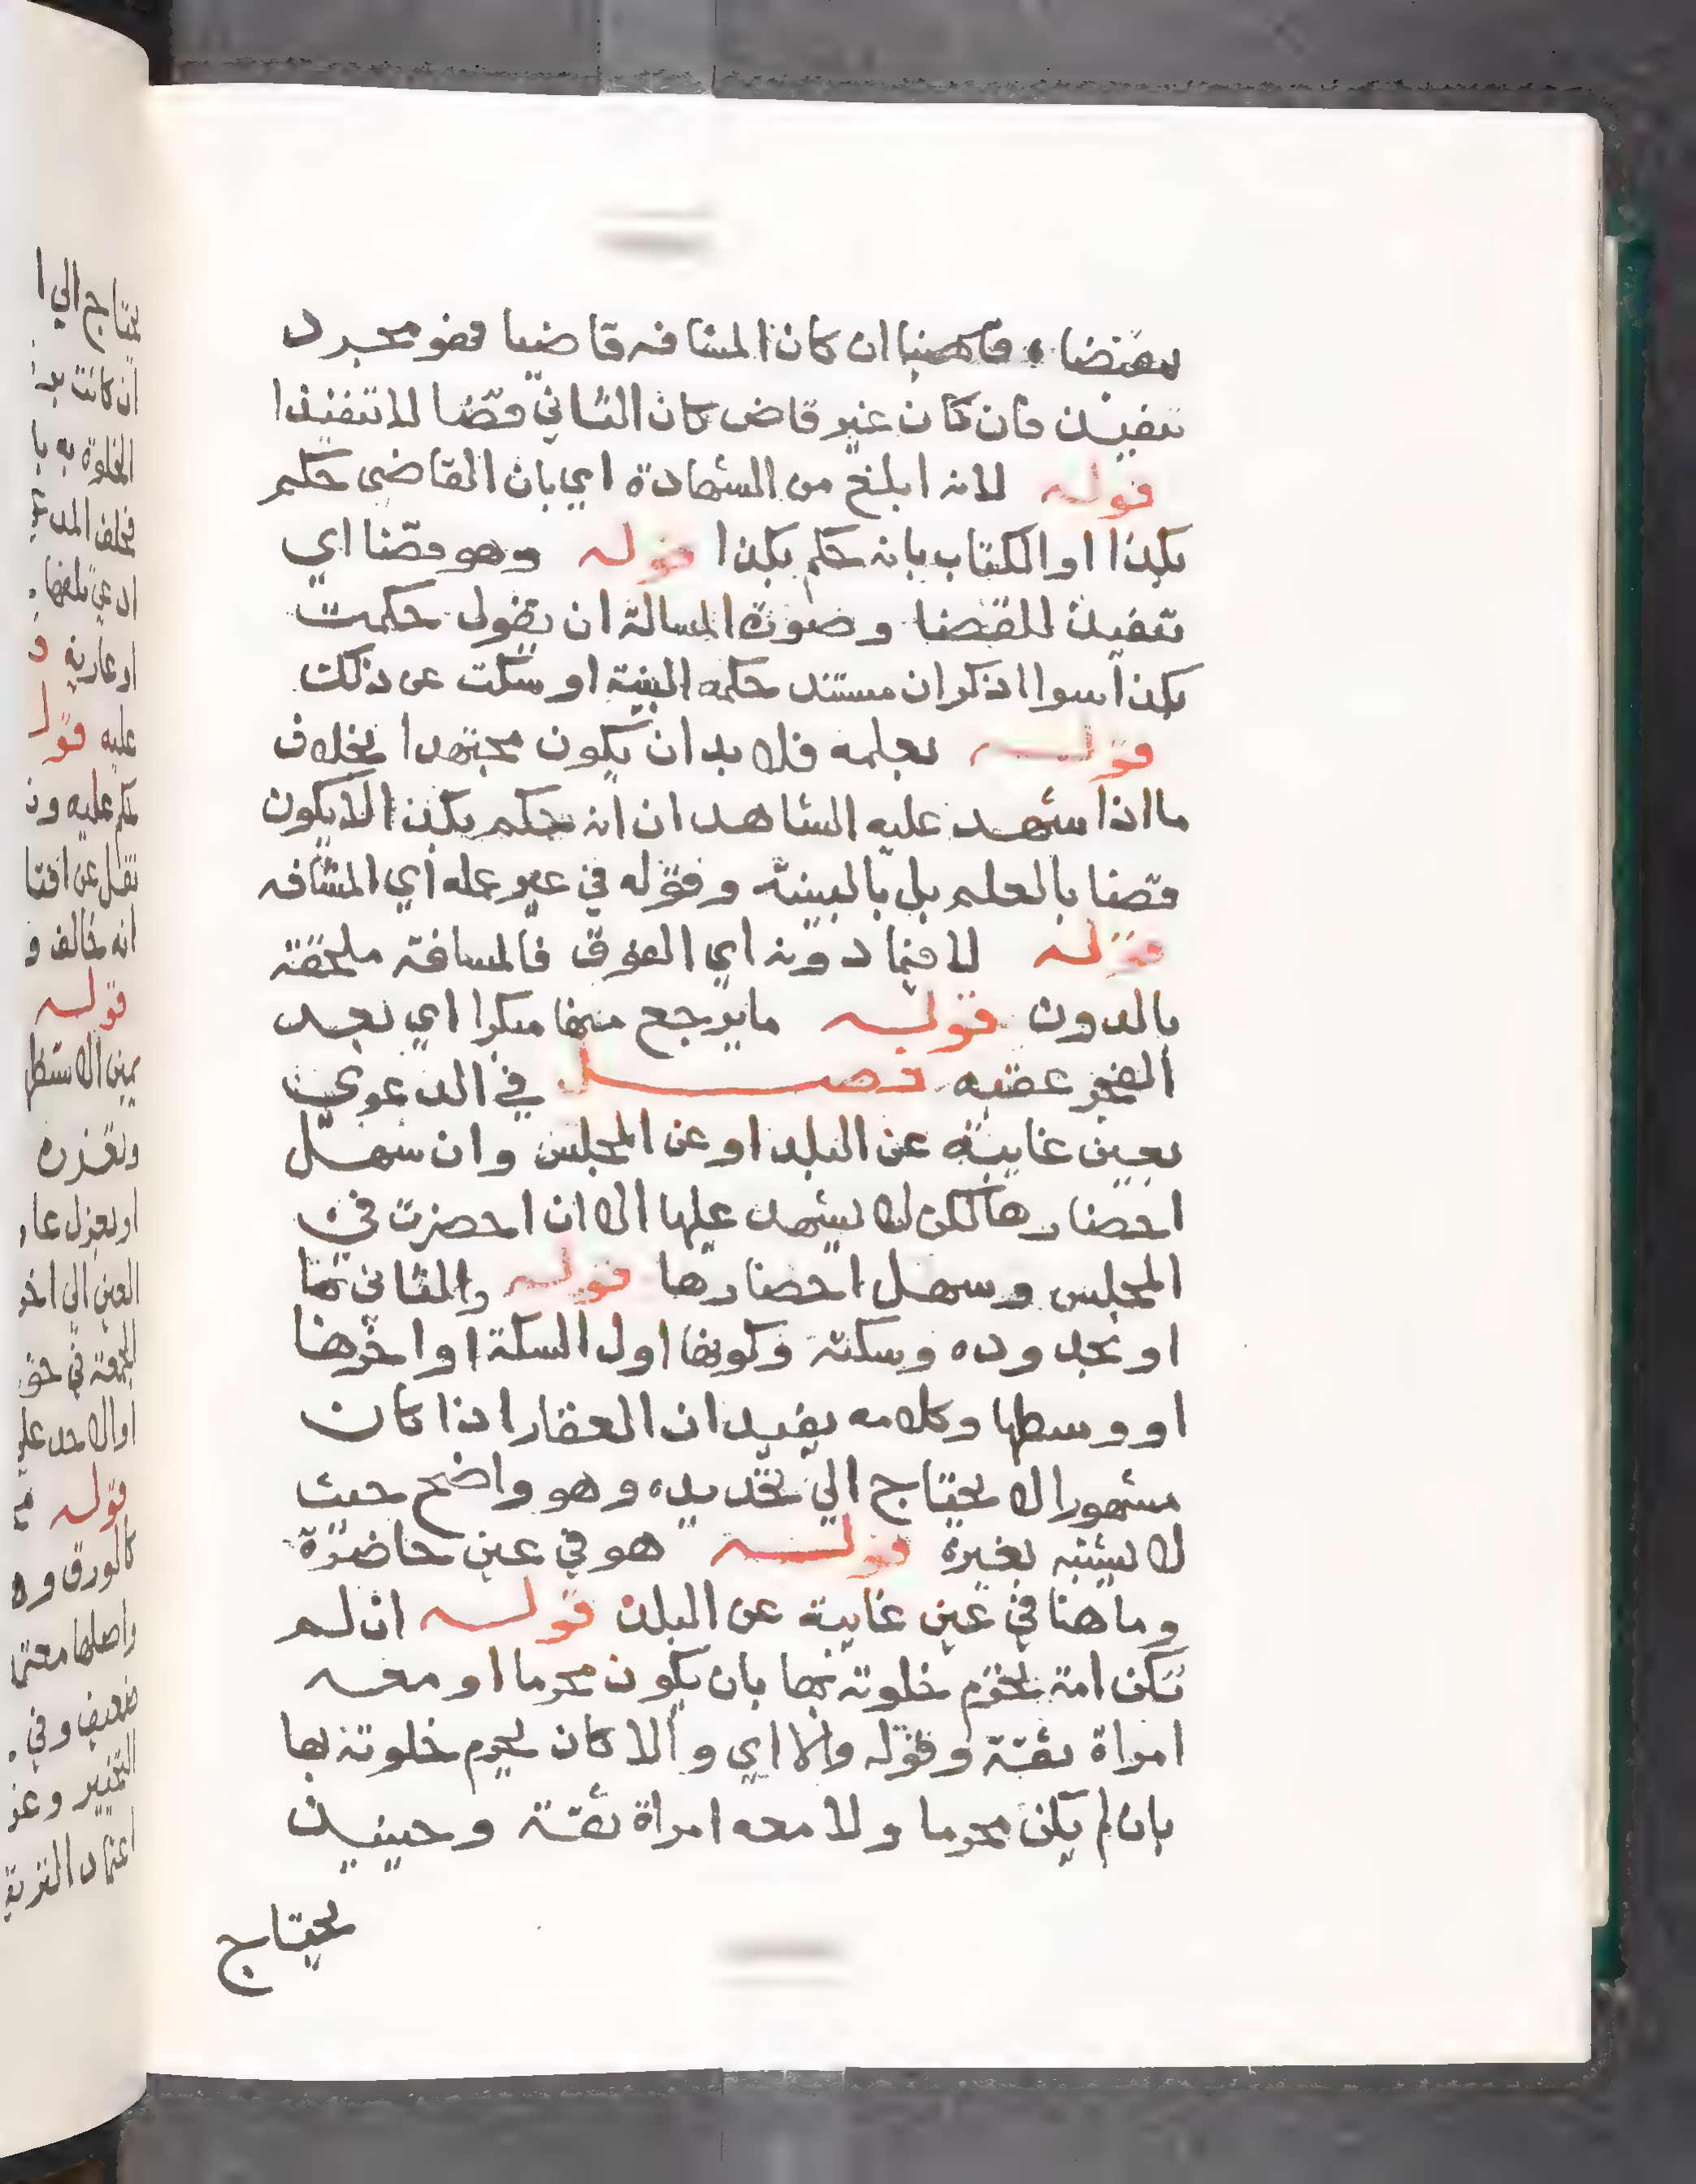 بمقتضاه فاصلها ان كان المشافه قاضيا فهو مجرد
تنفيذ فان كان غير قاض كان الثاني قضا لا تنفيذا
قوله لانه ابلغ من الشهادة اي بان القاضي حكم
بكذا او الكتاب بانه حكم بكذا قوله وهو قضا اي
تنفيذ للقضا وصورة المسالة ان يقول حكمت
بكذا سوا اذكر ان مستند حكمه البينة او سكت عن ذلك
قوله بعلمه فلا بد ان يكون مجتهدا بخلاف
ما اذا شهد عليه الشاهدان انه حكم بكذا لا يكون
قضا بالعلم بل بالبينة وقوله في غير عمله اي المشافه
قوله لا فيما دونه اي الفوق فالمسافة ملحقة
بالدون قوله ما يرجع منها مبكرا اي بعد
الفجر عقبه فصل في الدعوى
بعين غايبة عن البلد او عن المجلس وان سهل
احضارها لكن لا يشهد عليها الا ان احضرت في
المجلس وسهل احضارها قوله والثاني بها
او بحدوده وسكته وكونها اول السكة او اخرها
او وسطها وكلامه يفيد ان العقار اذا كان
مشهورا لا يحتاج الي تحديده وهو واضح حيث
لا يشتبه بغيره قوله هو في عين حاضرة
وما هنا في عين غايبة عن البلد قوله ان لم
تكن امة تحرم خلوته بها بان يكون محرما او معه
امراة ثقة وقوله والا اي والا كان يحرم خلوته بها
بان لم يكن محرما ولا معه امراة ثقة وحينيذ
يحتاج
يحتاج الي ا
ان كانت بد
الخلوة به با
فحلف المد
ادعي تلفها
او عارية
عليه قول
حكم عليه
نقل عن افتا
انه مخالف و
قوله
يمين الاستظ
العين الي اخ
قوله
كالورق و
واصلها
ضعيف وفي